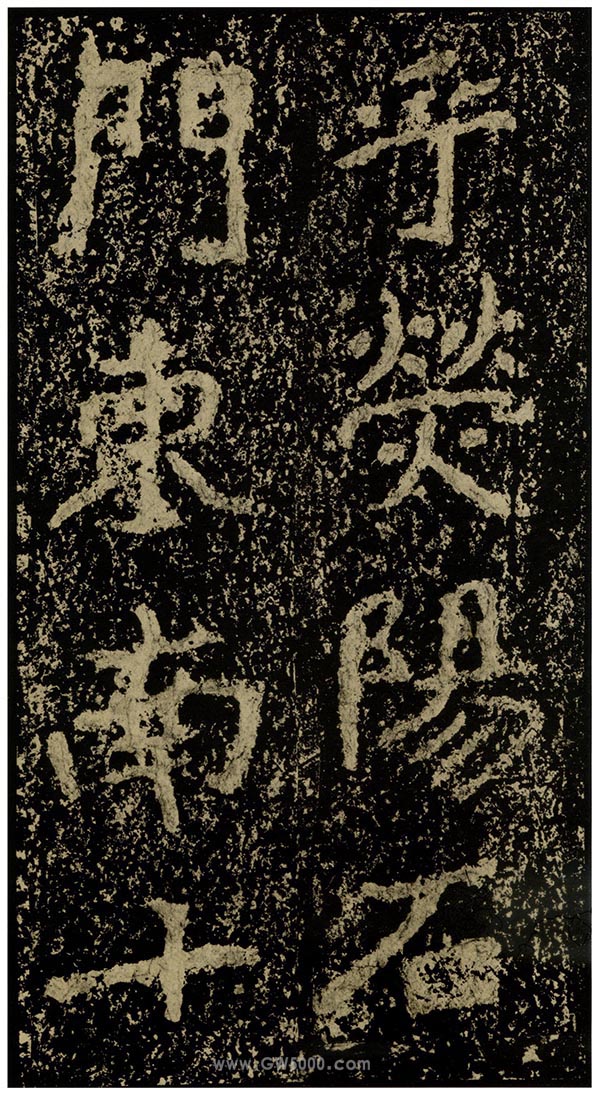 乎熒陽石
門東南十
www.GW5000.com